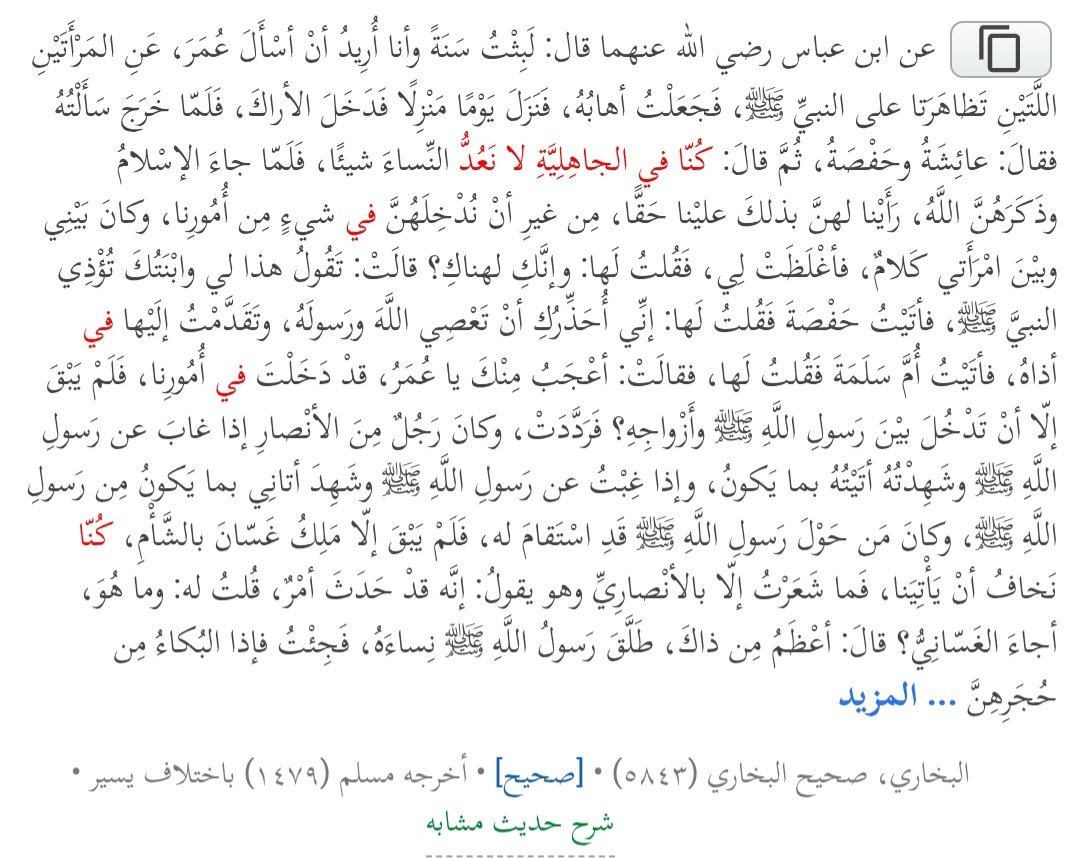 عن ابن عباس رضي الله عنهما قال: لَبِثْتُ سَنَةً وأنا أُرِيدُ أنْ أسْأَلَ عُمَرَ، عَنِ المَرْأَتَيْنِ
اللَّتَيْنِ تَظاهَرَتا على النبيِّ ﷺ، فَجَعَلْتُ أهابُهُ، فَنَزَلَ يَوْمًا مَنْزِلًا فَدَخَلَ الأراكَ، فَلَمّا خَرَجَ سَأَلْتُهُ
فقالَ: عائِشَةُ وحَفْصَةُ، ثُمَّ قالَ: كُنّا في الجاهِلِيَّةِ لا نَعُدُّ النِّساءَ شيئًا، فَلَمّا جاءَ الإسْلامُ
وذَكَرَهُنَّ اللَّهُ، رَأَيْنا لهنَّ بذلكَ عليْنا حَقًّا، مِن غيرِ أنْ نُدْخِلَهُنَّ في شيءٍ مِن أُمُورِنا، وكانَ بَيْنِي
وبيْنَ امْرَأَتي كَلامٌ، فأغْلَظَتْ لِي، فَقُلتُ لَها: وإنَّكِ لهناكِ؟ قالَتْ: تَقُولُ هذا لي وابْنَتُكَ تُؤْذِي
النبيَّ ﷺ، فأتَيْتُ حَفْصَةَ فَقُلتُ لَها: إنِّي أُحَذِّرُكِ أنْ تَعْصِي اللَّهَ ورَسولَهُ، وتَقَدَّمْتُ إلَيْها في
أذاهُ، فأتَيْتُ أُمَّ سَلَمَةَ فَقُلتُ لَها، فقالَتْ: أعْجَبُ مِنْكَ يا عُمَرُ، قدْ دَخَلْتَ في أُمُورِنا، فَلَمْ يَبْقَ
إلّا أنْ تَدْخُلَ بيْنَ رَسولِ اللَّهِ ﷺ وأَزْواجِهِ؟ فَرَدَّدَتْ، وكانَ رَجُلٌ مِنَ الأنْصارِ إذا غابَ عن رَسولِ
اللَّهِ ﷺ وشَهِدْتُهُ أتَيْتُهُ بما يَكونُ، وإذا غِبْتُ عن رَسولِ اللَّهِ ﷺ وشَهِدَ أتانِي بما يَكونُ مِن رَسولِ
اللَّهِ ﷺ، وكانَ مَن حَوْلَ رَسولِ اللَّهِ ﷺ قَدِ اسْتَقامَ له، فَلَمْ يَبْقَ إلّا مَلِكُ غَسّانَ بالشَّأْمِ، كُنّا
نَخافُ أنْ يَأْتِيَنا، فَما شَعَرْتُ إلّا بالأنْصارِيِّ وهو يقولُ: إنَّه قدْ حَدَثَ أمْرٌ، قُلتُ له: وما هُوَ،
أجاءَ الغَسّانِيُّ؟ قالَ: أعْظَمُ مِن ذاكَ، طَلَّقَ رَسولُ اللَّهِ ﷺ نِساءَهُ، فَجِئْتُ فإذا البُكاءُ مِن
حُجَرِهِنَّ ... المزيد
البخاري، صحيح البخاري (٥٨٤٣) • [صحيح] • أخرجه مسلم (١٤٧٩) باختلاف يسير •
شرح حديث مشابه